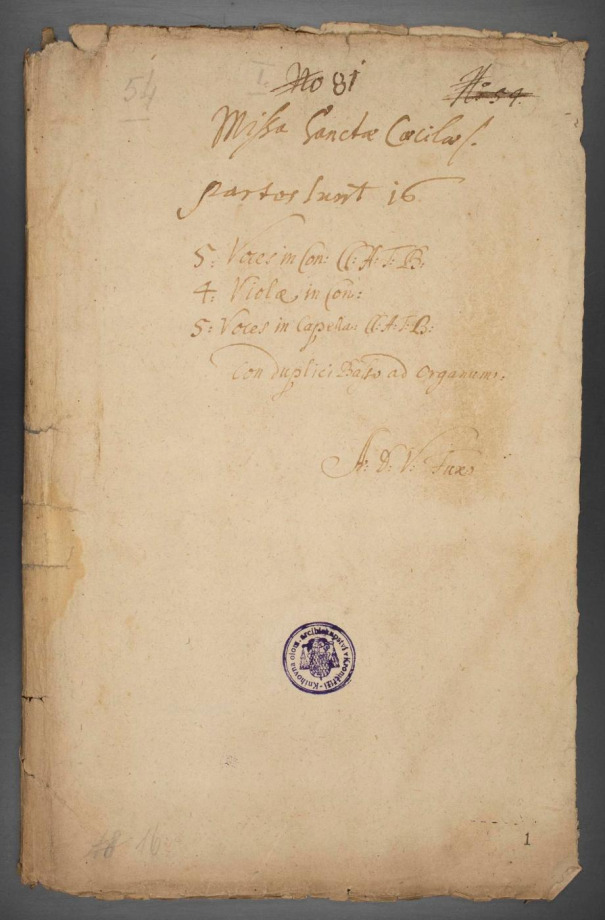 54
I. No 81
No 54.
Missa Sanctæ Cæciliæ.
Partes sunt 16
5: Voces in Con: CC: A: T: B:
4: Violæ in Con:
5: Voces in Capella: CC: A: T: B:
Con duplici Basso ad Organum:
A: D: V: Fux
Knihovna olom. arcibiskupství v Kroměříži
16
1